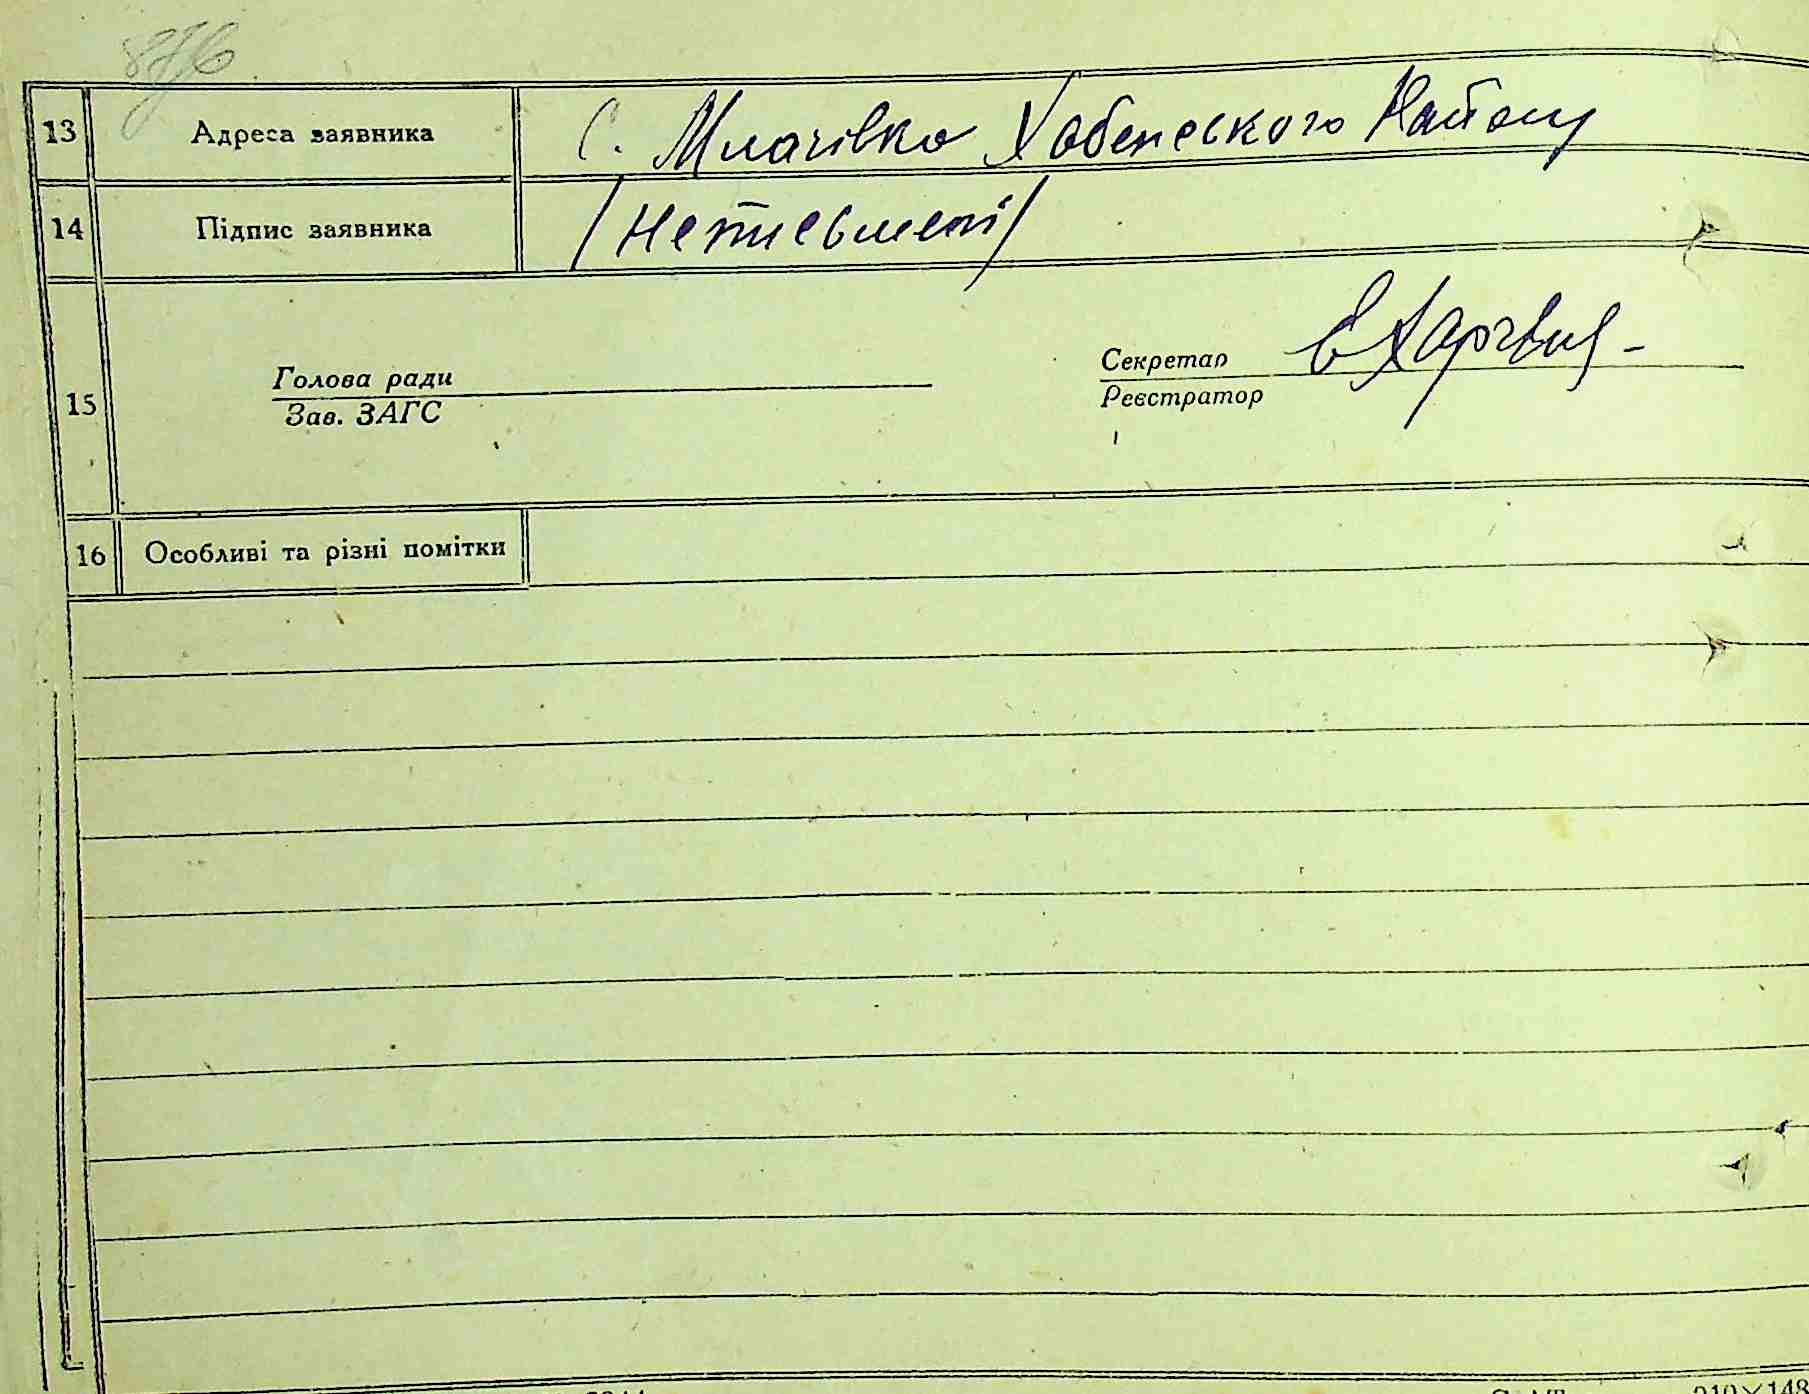 876
13 Адреса заявника С. Млачівка Хабенського Району
14 Підпис заявника /неписьмені/
15 Голова ради
Зав. ЗАГС
Секретар
Реєстратор
16 Особливі та різні помітки
210×148